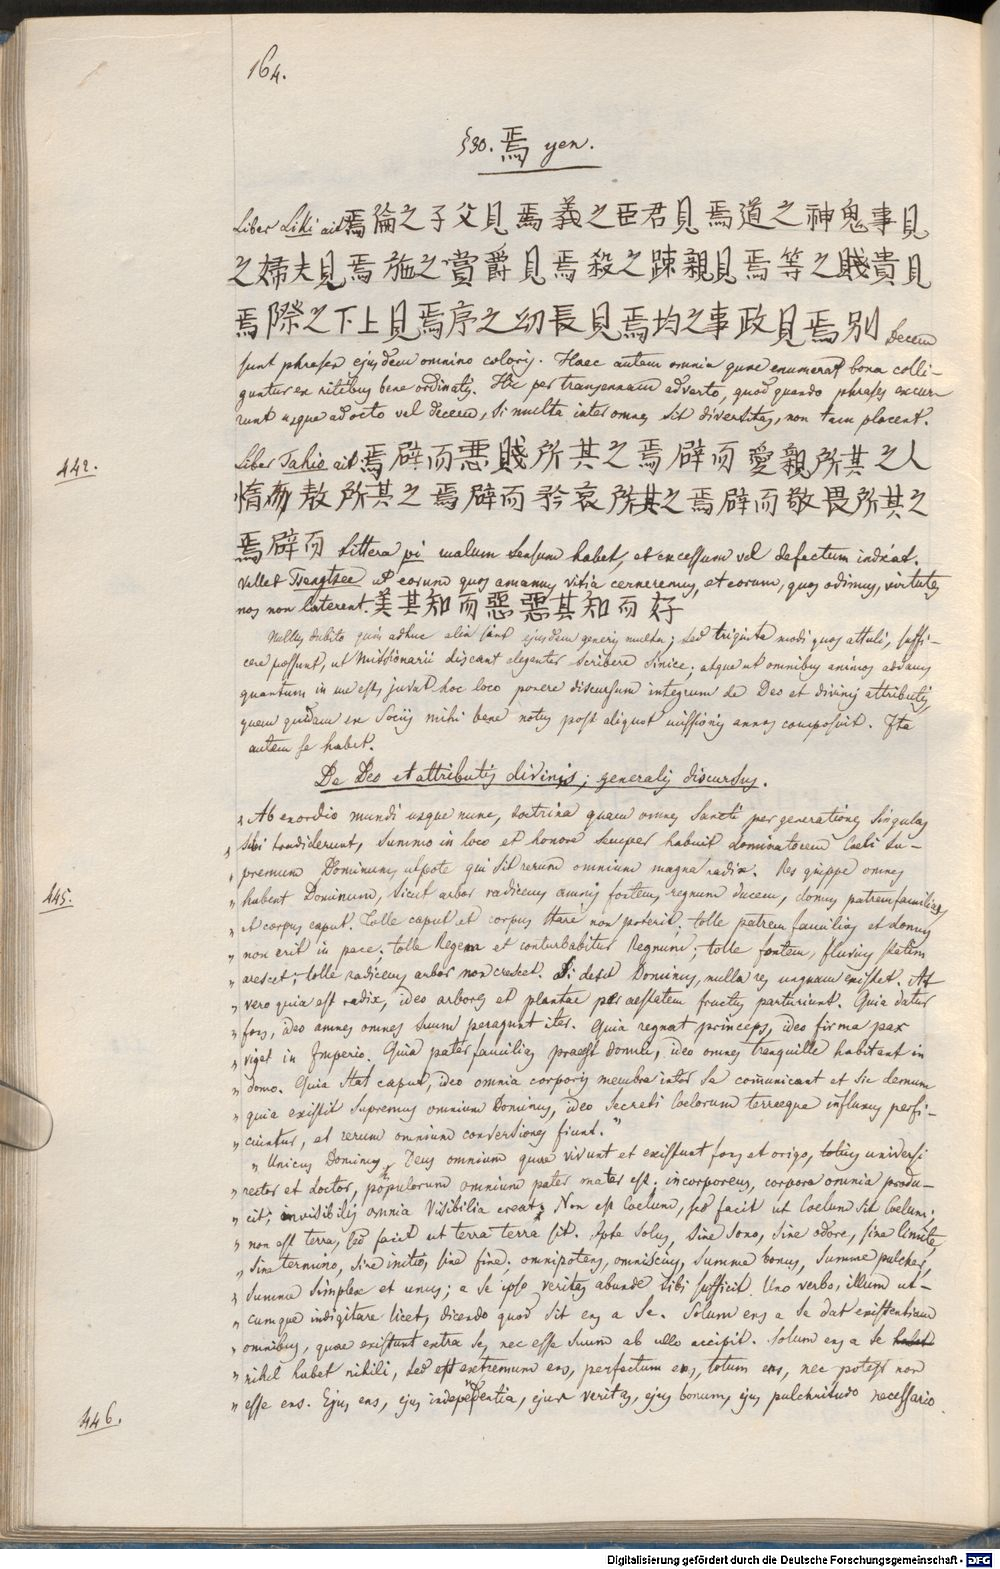 164.
§30. 焉 yen.
Liber Liki ait 焉倫之子父見焉義之臣君見焉道之神鬼事見
之婦夫見焉施之賞爵見焉殺之踈親見焉等之賤貴見
焉際之下上見焉序之幼長見焉均之事政見焉別 Decem
sunt phrases ejusdem omnino coloris. Haec autem omnia quae enumerat bona colli-
guntur ex ritibus bene ordinatis. Hic per transennam adverto, quod quando phrases excur-
runt usque ad octo vel decem, si multa inter omnes sit diversitas, non tam placent.
442.
Liber Tahio ait 焉辟而惡賤所其之焉辟而愛親所其之人
惰敖所其之焉辟而矜哀所其之焉辟而敬畏所其之
焉辟而 Littera pi malum sensum habet, et excessum vel defectum indicat.
Vellet Tsengtsee ut eorum quos amamus vitia cerneremus, et eorum, quos odimus, virtutes
nos non laterent. 美其知而惡惡其知而好
Nullus dubito quin adhuc alia sint ejusdem generis multa; sed triginta modi quos attuli, suffi-
cere possunt, ut Missionarii discant eleganter scribere sinice; atque ut omnibus animos addamus
quantum in me est, juvat hoc loco ponere discursum integrum de Deo et divinis attributis,
quem quidam ex Sociis mihi bene notus post aliquot missionis annos composuit. Ita
autem se habet.
De Deo et attributis divinis; generalis discursus.
„ Ab exordio mundi usque nunc, doctrina quam omnes Sancti per generationes singulas
„ sibi tradiderunt, summo in loco et honore semper habuit dominatorem Coeli Su-
„ premum Dominum, utpote qui sit rerum omnium magna radix. Res quippe omnes
445.
„ habent Dominum, sicut arbor radicem amnis fontem, regnum ducem, domus patremfamilias,
„ et corpus caput. Tolle caput et corpus stare non poterit; tolle patrem familias et domus
„ non erit in pace; tolle Regem et conturbabitur Regnum; tolle fontem, fluvius statim
„ arescet; tolle radicem, arbor non crescet. Si desit Dominus, nulla res unquam existet. At
„ vero quia est radix, ideo arbores et plantae per aestatem fructus parturiunt. Quia datur
„ fons, ideo amnes omnes suum peragunt iter. Quia regnat princeps, ideo firma pax
„ viget in Imperio. Quia pater familias praeest domui, ideo omnes tranquille habitant in
„ domo. Quia stat caput, ideo omnia corporis membra inter se comunicant et sic demum
„ quia existit supremus omnium Dominus, ideo secreti Coelorum terraeque influxus perfi-
„ ciuntur, et rerum omnium conversiones fiunt.“
„ Unicus Dominus, Deus omnium quae vivunt et existunt fons et origo, totius universi
„ rector et doctor, populorum omnium pater mater est; incorporeus, corpora omnia produ-
„ cit; invisibilis omnia visibilia creat; Non est Coelum, sed facit ut Coelum sit Coelum;
„ non est terra, sed facit ut terra terra sit. Ipse solus, sine sono, sine odore, sine limite,
„ sine termino, sine initio, sine fine; omnipotens, omniscius, summe bonus, summe pulcher,
„ summe simplex et unus; a se ipso veritas abunde sibi sufficit. Uno verbo, illum ut-
„ cumque indigitare licet, dicendo quod sit ens a se. Solum ens a se dat existentiam
„ omnibus, quae existunt extra se, nec esse suum ab ullo accipit. Solum ens a se habet
„ nihil habet nihili, sed est extremum ens, perfectum ens, totum ens, nec potest non
446.
„ esse ens. Ejus ens, ejus independentia, ejus veritas, ejus bonum, ejus pulchritudo necessario
Digitalisierung gefördert durch die Deutsche Forschungsgemeinschaft - DFG